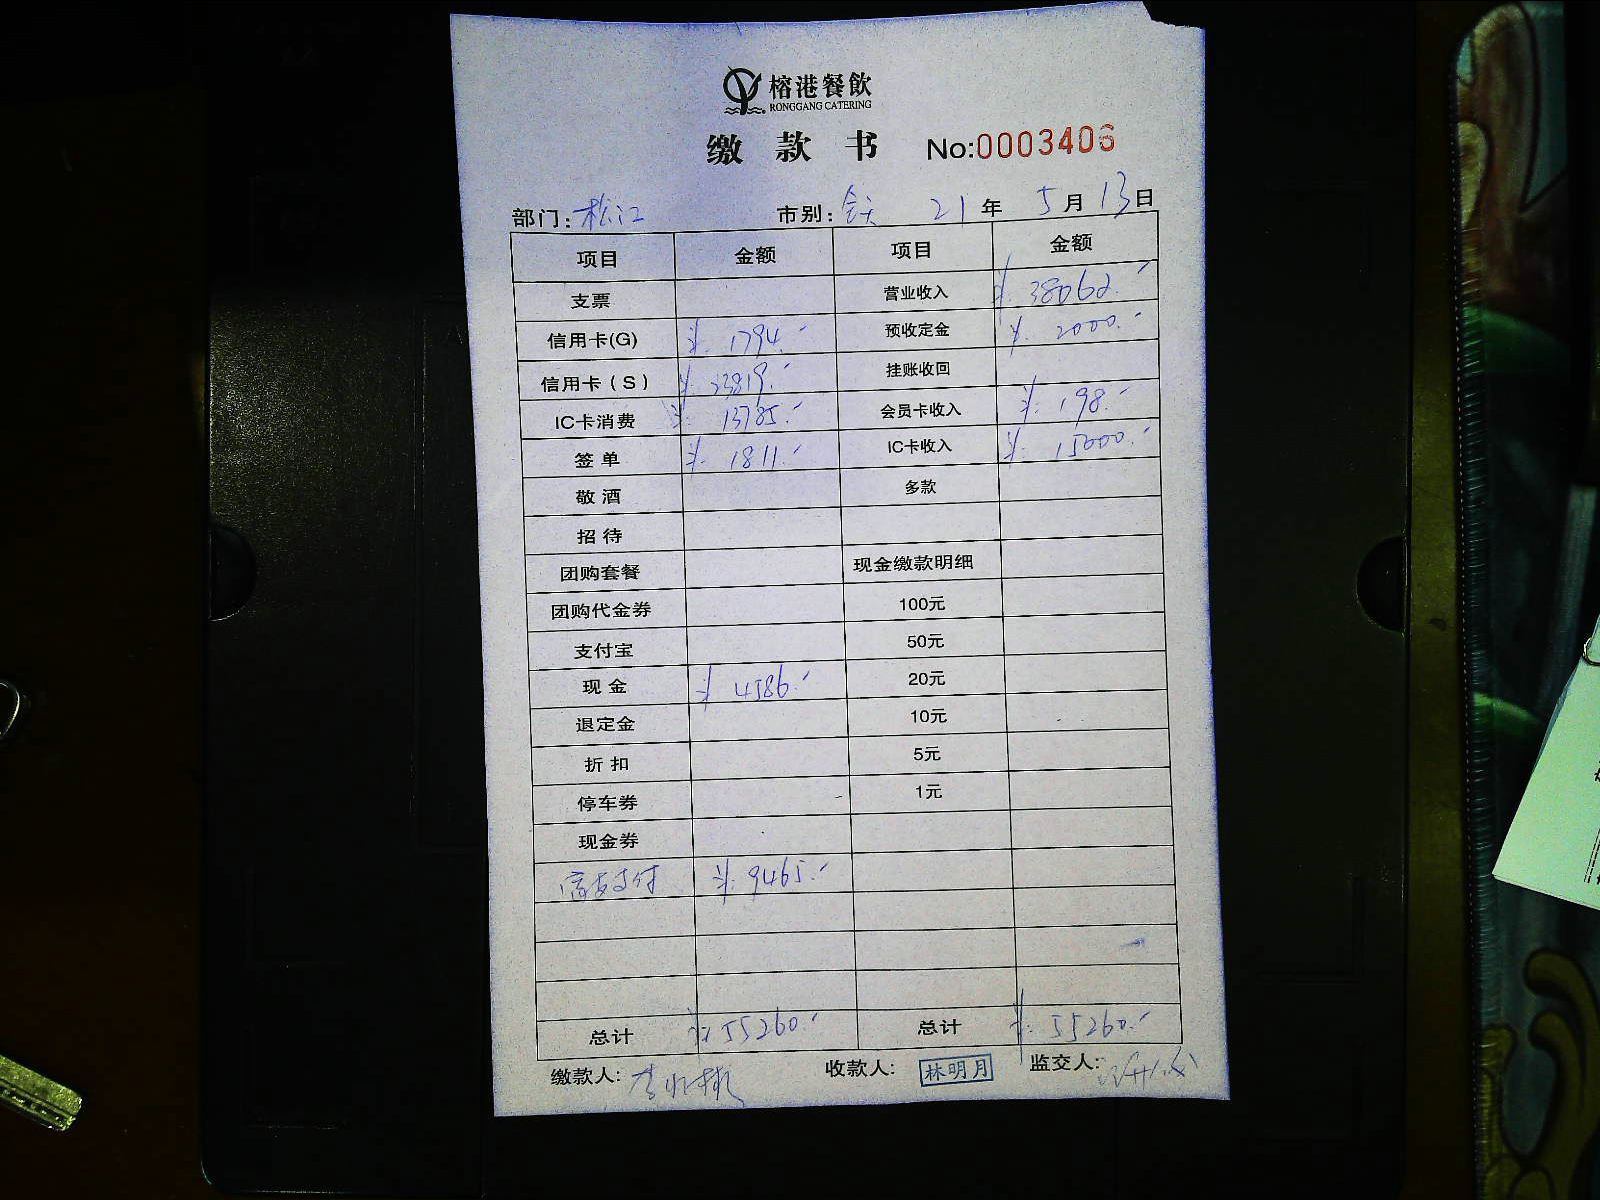 榕港餐飲
RONGGANG CATERING
缴款书 No:0003406
部门:松江 市别:全天 21年5月13日
项目 金额 项目 金额
支票 营业收入 ¥.38062.-
信用卡(G) ¥.1794.- 预收定金 ¥.2000.-
信用卡(S) ¥.23819.- 挂账收回
IC卡消费 ¥.13785.- 会员卡收入 ¥.198.-
签单 ¥.1811.- IC卡收入 ¥.15000.-
敬酒 多款
招待
团购套餐 现金缴款明细
团购代金券 100元
支付宝 50元
现金 ¥4586.- 20元
退定金 10元
折扣 5元
停车券 1元
现金券
富友支付 ¥.9465.-
总计 ¥.55260.- 总计 ¥.55260.-
缴款人: 收款人:林明月 监交人: